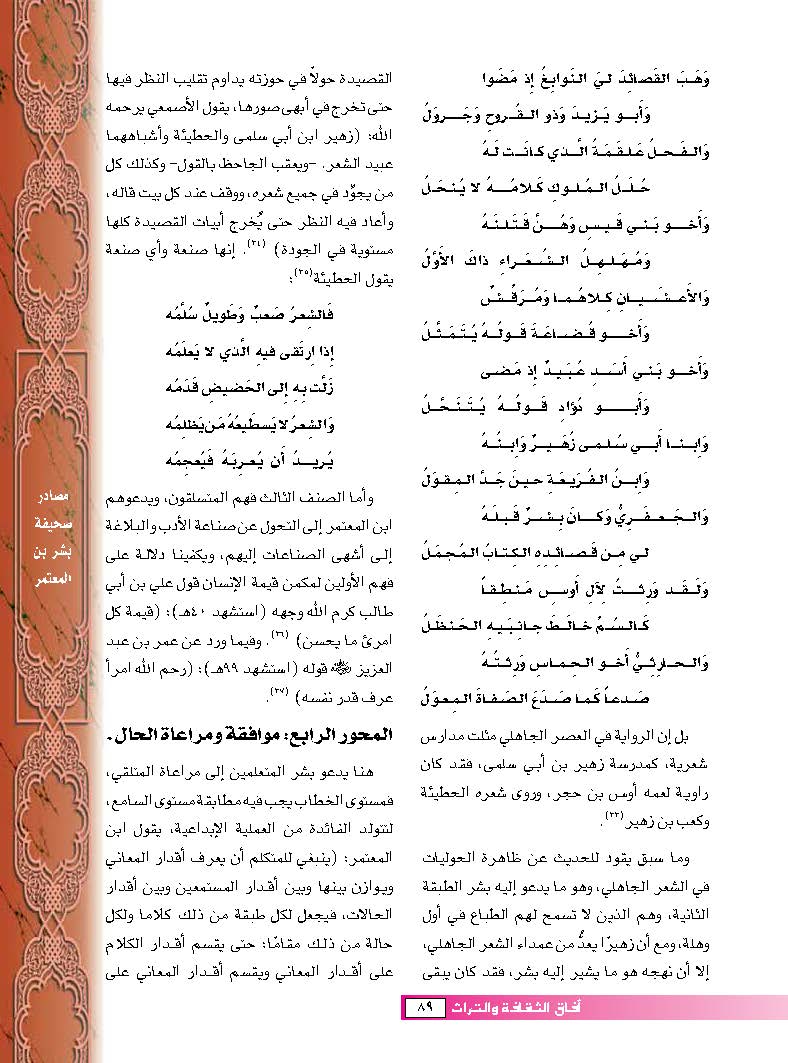 وَهَبَ القَصائِدَ ليَ النَوابِغُ إِذ مَضَوا
وَأَبو يَزيدَ وَذو القُروحِ وَجَروَلُ
وَالفَحلُ عَلقَمَةُ الَّذي كانَت لَهُ
حُلَلُ المُلوكِ كَلامُهُ لا يُنحَلُ
وَأَخو بَني قَيسٍ وَهُنَّ قَتَلنَهُ
وَمُهَلهِلُ الشُعَراءِ ذاكَ الأَوَّلُ
وَالأَعشَيانِ كِلاهُما وَمُرَقِّشٌ
وَأَخو قُضاعَةَ قَولُهُ يُتَمَثَّلُ
وَأَخو بَني أَسَدٍ عُبَيدٌ إِذ مَضى
وَأَبو دُؤادٍ قَولُهُ يُتَنَحَّلُ
وَابنا أَبي سُلمى زُهَيرٌ وَابنُهُ
وَابنُ الفُرَيعَةِ حينَ جَدَّ المِقوَلُ
وَالجَعفَرِيُّ وَكانَ بِشرٌ قَبلَهُ
لي مِن قَصائِدِهِ الكِتابُ المُجمَلُ
وَلَقَد وَرِثتُ لِآلِ أَوسٍ مَنطِقاً
كَالسُمِّ خالَطَ جانِبَيهِ الحَنظَلُ
وَالحارِثِيُّ أَخو الحِماسِ وَرِثتُهُ
صَدعاً كَما صَدَعَ الصَفاةَ المِعوَلُ
بل إن الرواية في العصر الجاهلي مثلت مدارس
شعرية، كمدرسة زهير بن أبي سلمى، فقد كان
راوية لعمه أوس بن حجر، وروى شعره الحطيئة
وكعب بن زهير(٣٣).
وما سبق يقود للحديث عن ظاهرة الحوليات
في الشعر الجاهلي، وهو ما يدعو إليه بشر الطبقة
الثانية، وهم الذين لا تسمح لهم الطباع في أول
وهلة، ومع أن زهيرًا يعدُّ من عمداء الشعر الجاهلي،
إلا أن نهجه هو ما يشير إليه بشر، فقد كان يبقى
القصيدة حولاً في حوزته يداوم تقليب النظر فيها
حتى تخرج في أبهى صورها، يقول الأصمعي يرحمه
الله: (زهير ابن أبي سلمى والحطيئة وأشباههما
عبيد الشعر. -ويعقب الجاحظ بالقول- وكذلك كل
من يجوِّد في جميع شعره، ووقف عند كل بيت قاله،
وأعاد فيه النظر حتى يُخرج أبيات القصيدة كلها
مستوية في الجودة) (٣٤). إنها صنعة وأي صنعة
يقول الحطيئة(٣٥):
فَالشِعرُ صَعبٌ وَطَويلٌ سُلَّمُه
إِذا اِرتَقى فيهِ الَّذي لا يَعلَمُه
زَلَّت بِهِ إِلى الحَضيضِ قَدَمُه
وَالشِعرُ لا يَسطيعُهُ مَن يَظلِمُه
يُريدُ أَن يُعرِبَهُ فَيُعجِمُه
وأما الصنف الثالث فهم المتسلقون، ويدعوهم
ابن المعتمر إلى التحول عن صناعة الأدب والبلاغة
إلى أشهى الصناعات إليهم، ويكفينا دلالة على
فهم الأولين لمكمن قيمة الإنسان قول علي بن أبي
طالب كرم الله وجهه (استشهد ٤٠هـ): (قيمة كل
امرئ ما يحسن) (٣٦). وفيما ورد عن عمر بن عبد
العزيز قوله (استشهد ٩٩هـ): (رحم الله امرأ
عرف قدر نفسه) (٣٧).
المحور الرابع: موافقة ومراعاة الحال.
هنا يدعو بشر المتعلمين إلى مراعاة المتلقي،
فمستوى الخطاب يجب فيه مطابقة مستوى السامع،
لتتولد الفائدة من العملية الإبداعية، يقول ابن
المعتمر: (ينبغي للمتكلم أن يعرف أقدار المعاني
ويوازن بينها وبين أقدار المستمعين وبين أقدار
الحالات، فيجعل لكل طبقة من ذلك كلاما ولكل
حالة من ذلك مقامًا؛ حتى يقسم أقدار الكلام
على أقدار المعاني ويقسم أقدار المعاني على
مصادر
صحيفة
بشر بن
المعتمر
آفاق الثقافة والتراث ٨٩